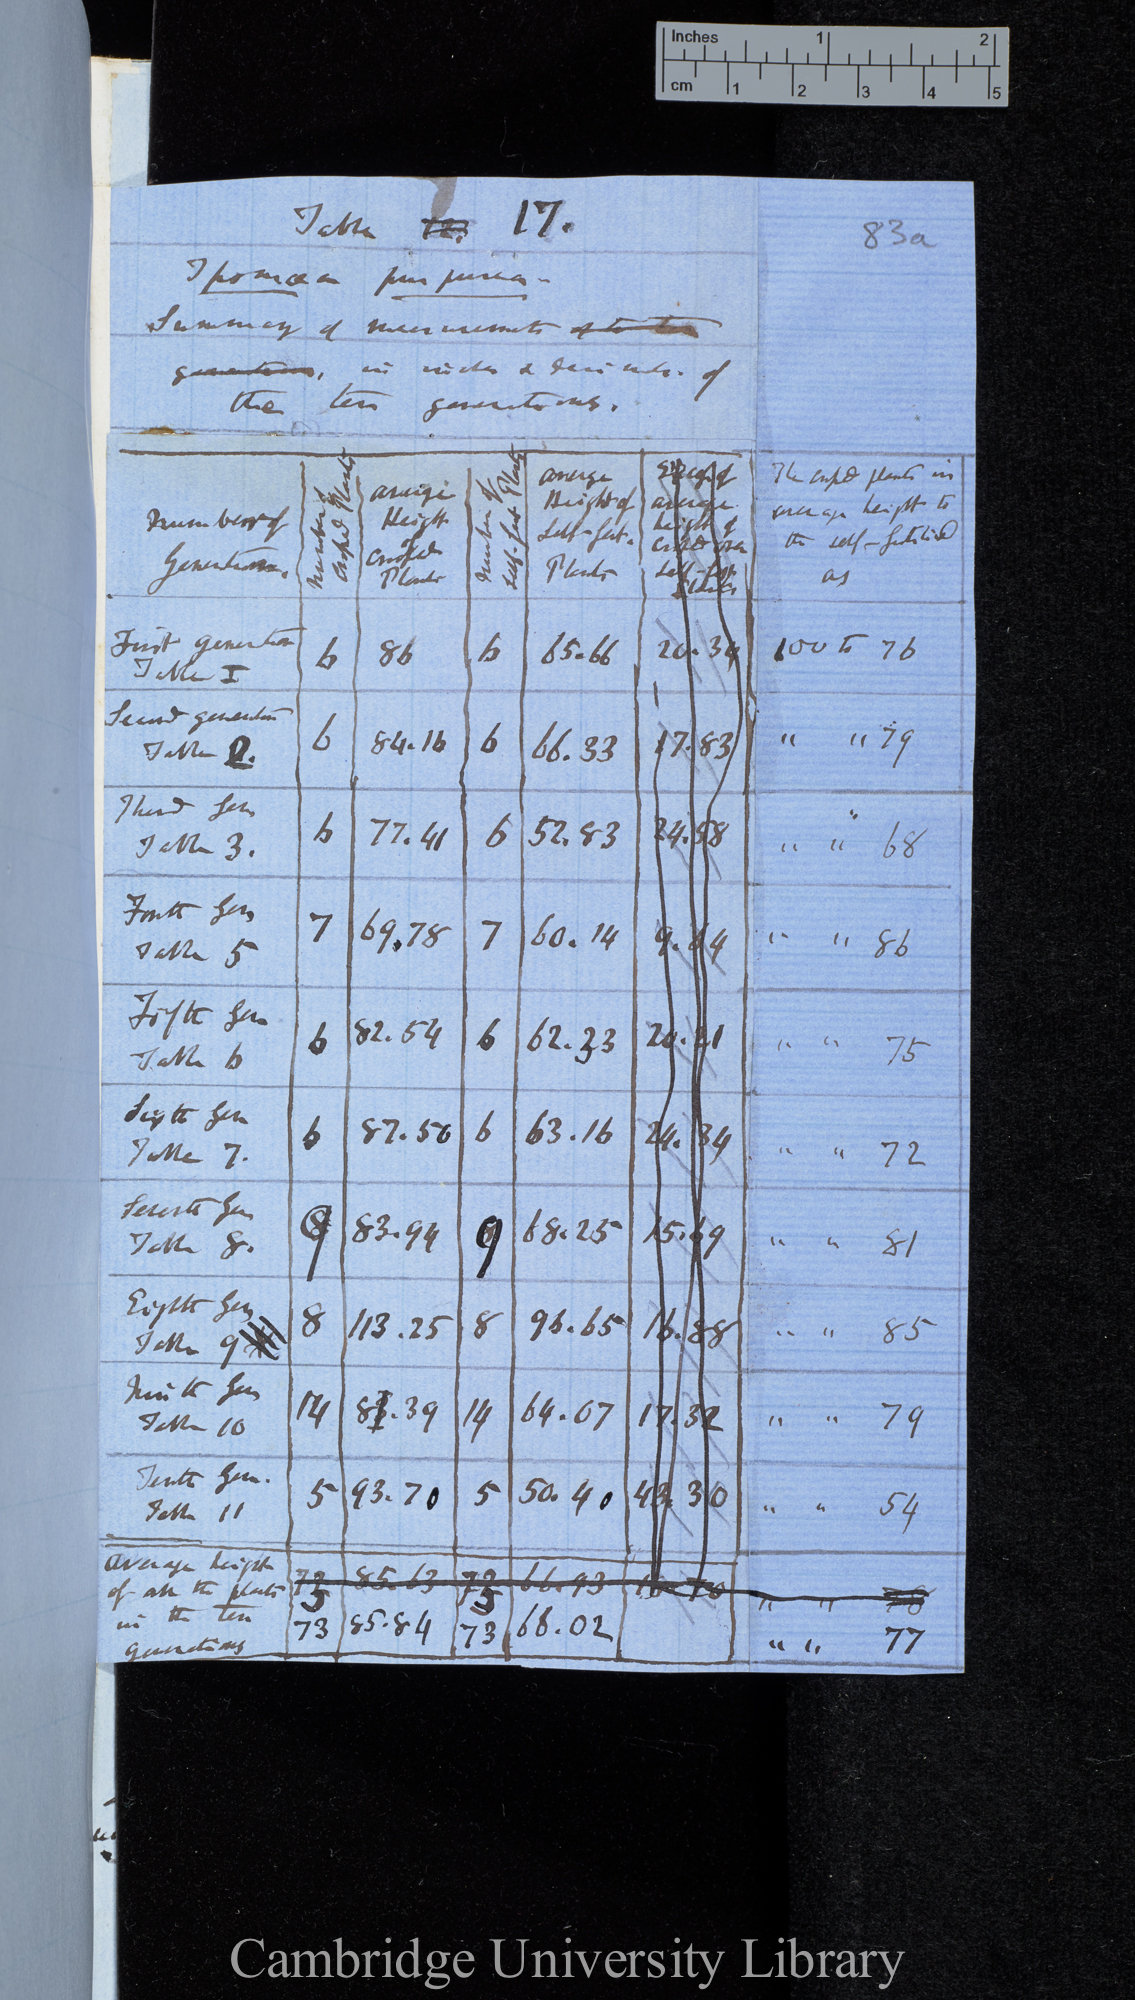 Inches 1 2
cm 1 2 3 4 5
83a
Table 17.
Ipomœa purpurea.
Summary of measurements of the ten
generations, in inches & decimals. of
the ten generations.
Number of Generations.
Number of Crossed Plants
average Height of Crossed Plants
Number of Self-fert. Plants
average Height of Self-fert. Plants
Excess of average height of crossed over Self-fert Plants
The crossed plants in average height to the self-fertilised as
First generation Table I 6 86 6 65.66 20.34 100 to 76
Second generation Table 2. 6 84.16 6 66.33 17.83 " " 79
Third Gen Table 3. 6 77.41 6 52.83 24.58 " " 68
Fourth Gen Table 5 7 69.78 7 60.14 9.64 " " 86
Fifth Gen Table 6 6 82.54 6 62.33 20.21 " " 75
Sixth Gen Table 7. 6 87.50 6 63.16 24.34 " " 72
Seventh Gen Table 8. 9 83.94 9 68.25 15.69 " " 81
Eighth Gen Table 9 8 113.25 8 96.65 16.88 " " 85
Ninth Gen Table 10 14 81.39 14 64.07 17.32 " " 79
Tenth Gen. Table 11 5 93.70 5 50.40 43.30 " " 54
Average height of all the plants in the ten generations 73 85.63 73 66.93 18.70 " " 78
73 85.84 73 66.02 " " 77
Cambridge University Library